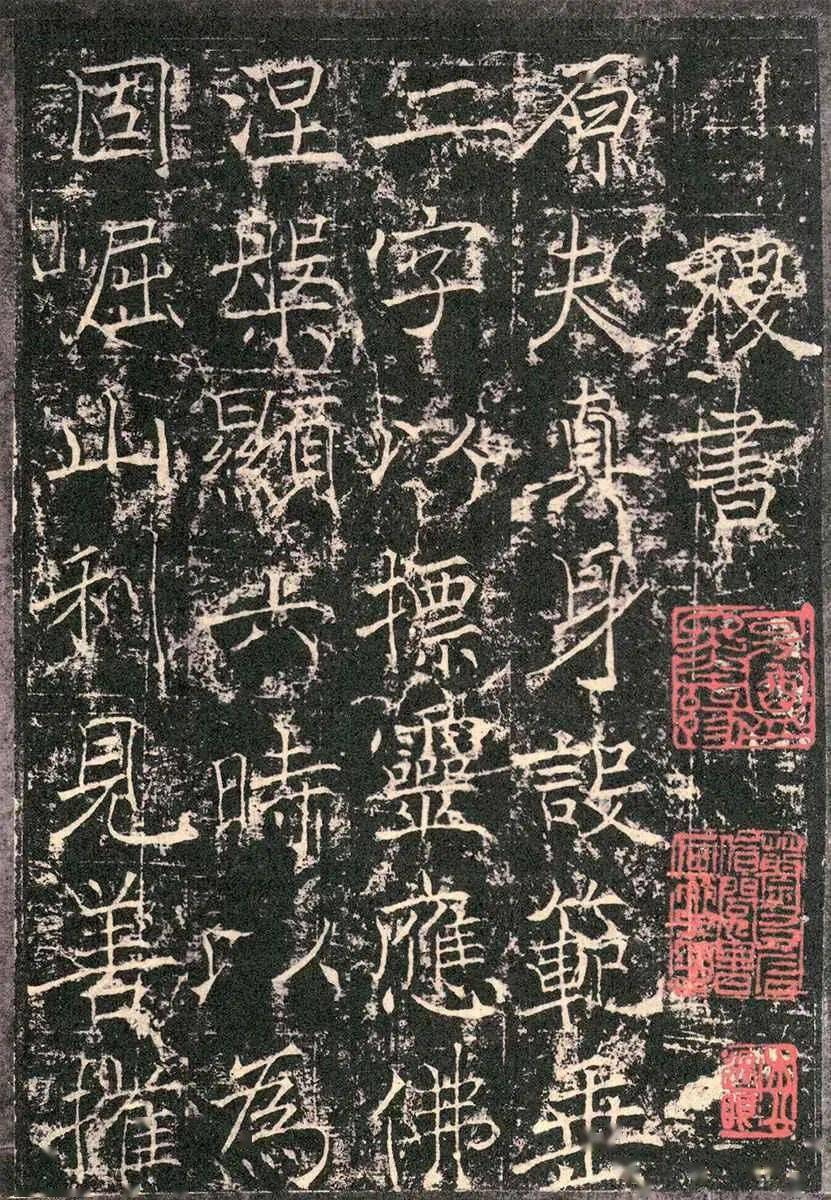 稷書
原夫真身設範垂
二字以標靈應佛
涅槃顯六時以為
固崛山利見善摧